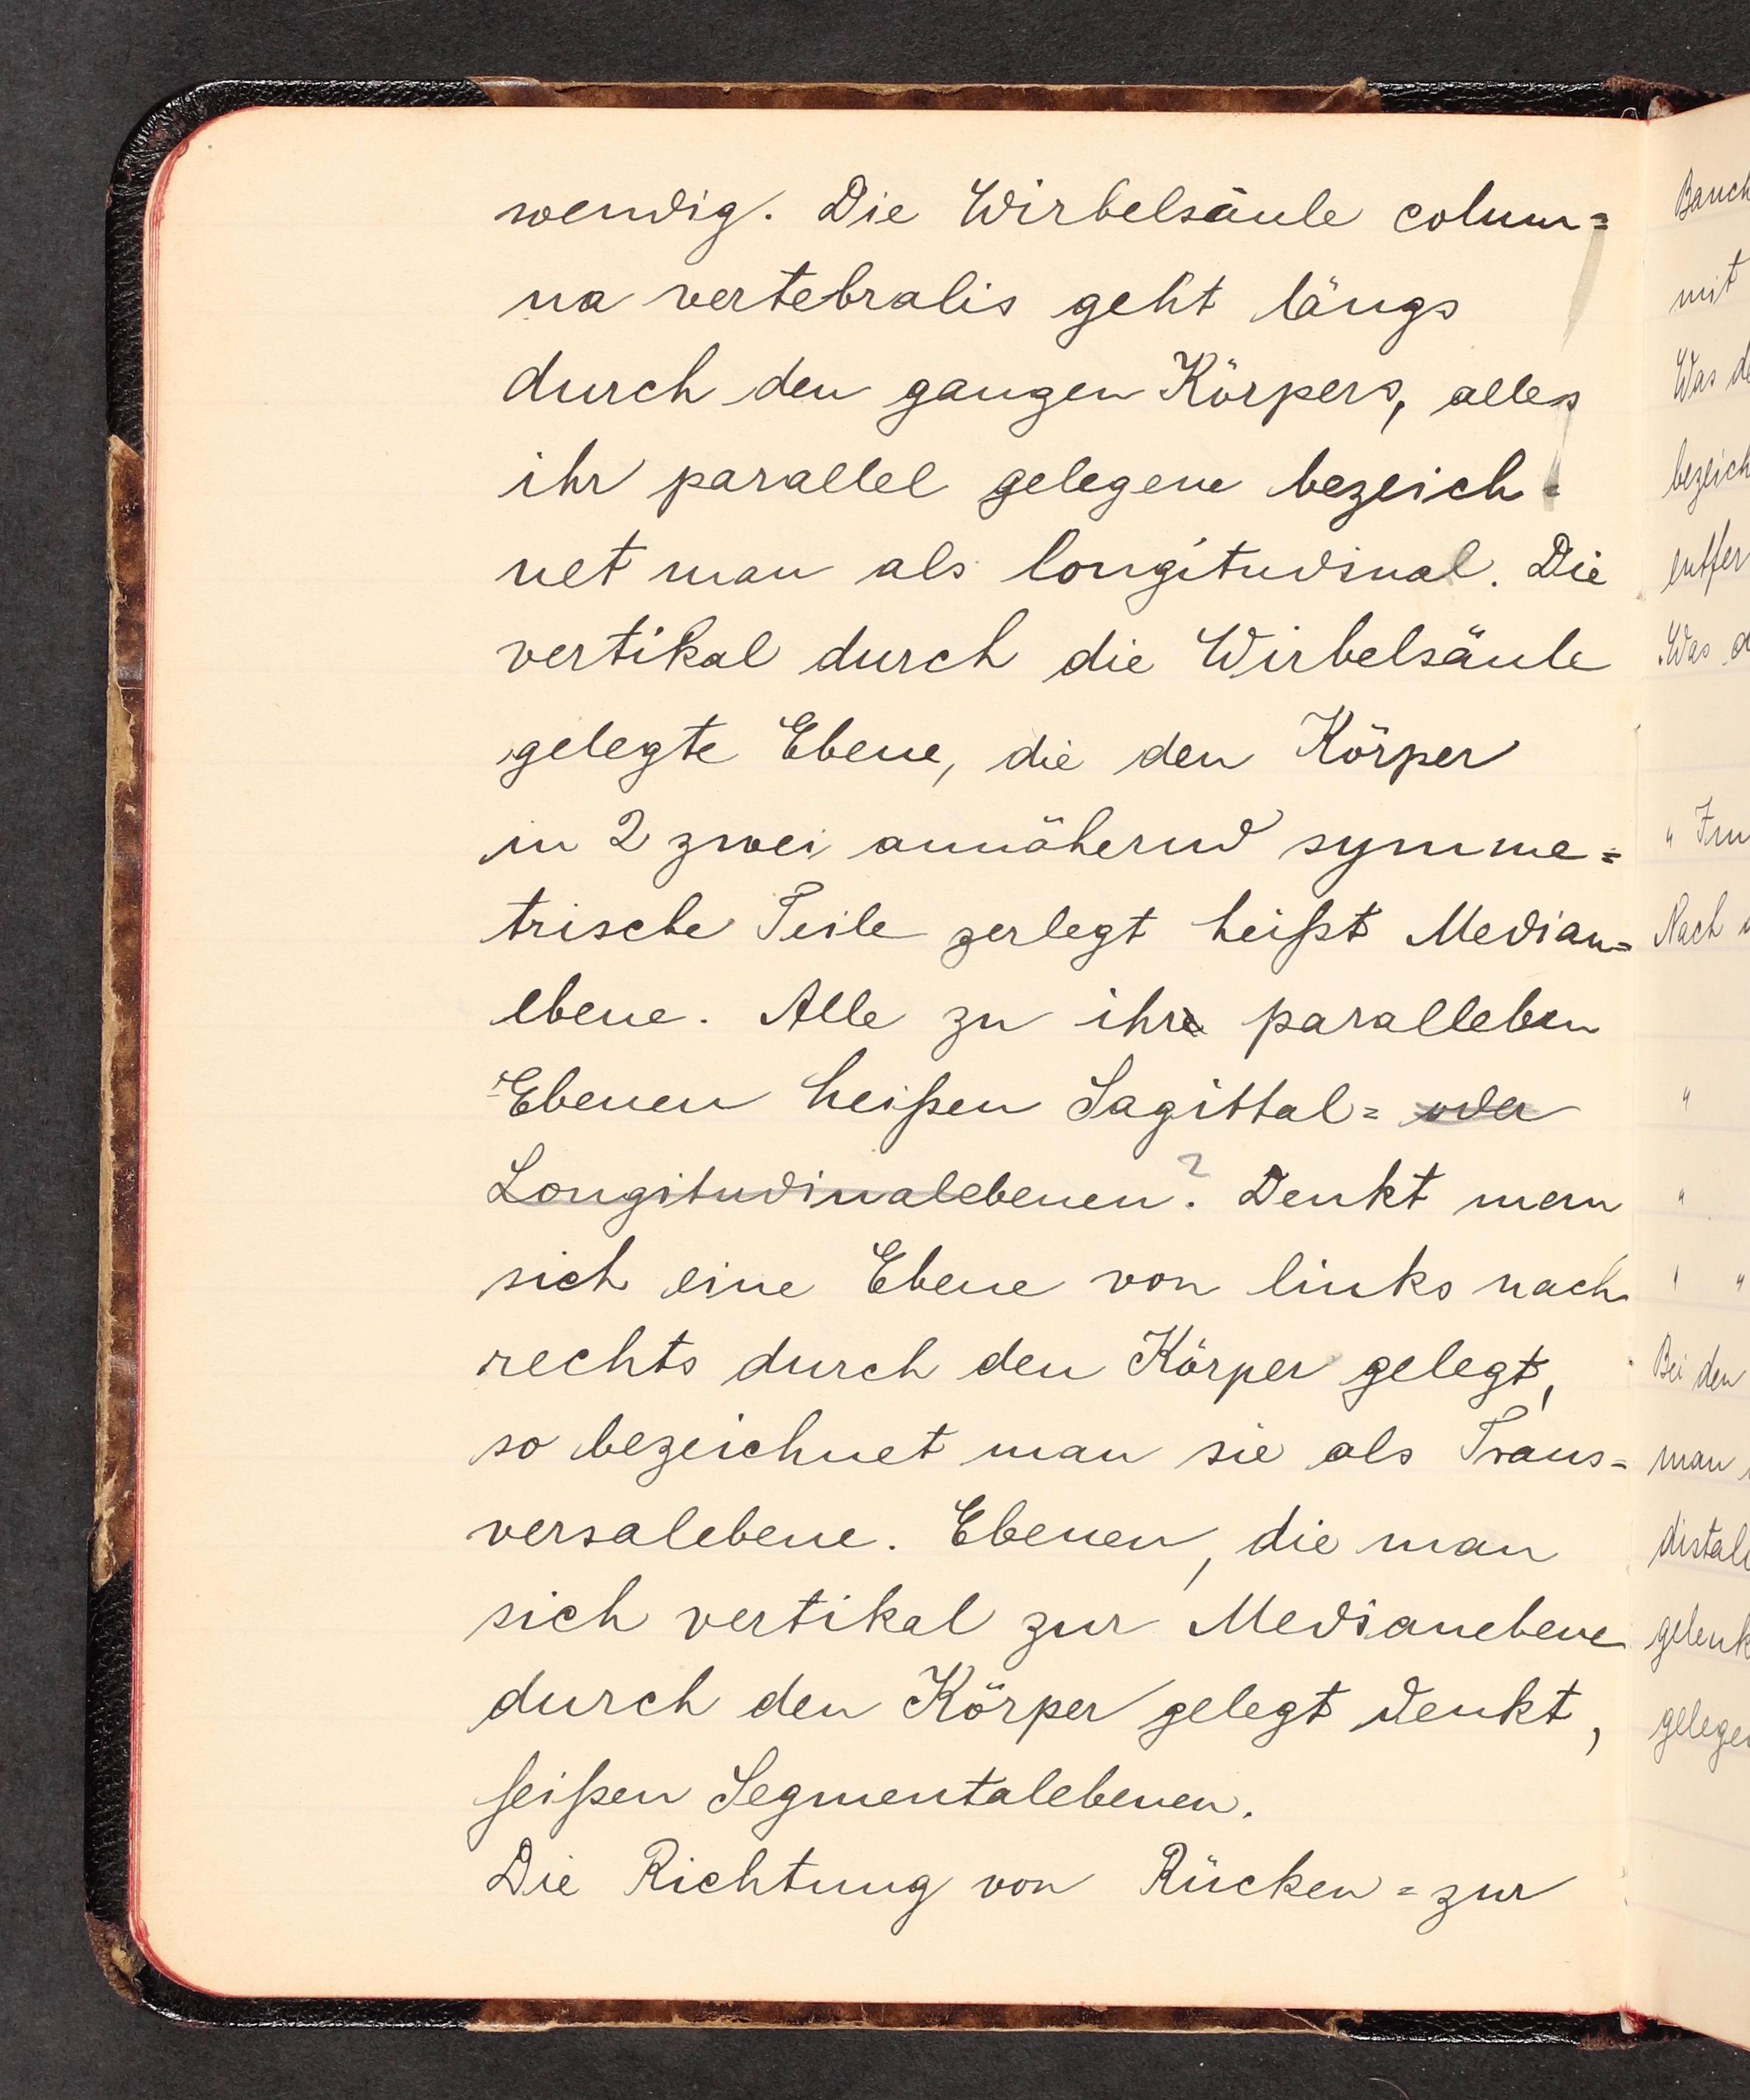 wendig. Die Wirbelsäule colum=
na vertebralis geht längs
durch den ganzen Körpers, alles
ihr parallel gelegene bezeich=
net man als longitudinal. Die
vertikal durch die Wirbelsäule
gelegte Ebene, die den Körper
in 2 zwei annähernd symme=
trische Teile zerlegt heißt Median=
ebene. Alle zu ihr parallelen
Ebenen heißen Sagittal= oder
Longitudinalebenen. ? Denkt man
sich eine Ebene von links nach
rechts durch den Körper gelegt,
so bezeichnet man sie als Trans=
versalebene. Ebenen, die man
sich vertikal zur Medianebene
durch den Körper gelegt denkt,
heißen Segmentalebenen.
Die Richtung von Rücken = zur
Bauch
mit
Was de
bezeich
entfer
Was d
" Inn
Nach
"
"
" "
Bei den
man
distal
gelenk
gelegen